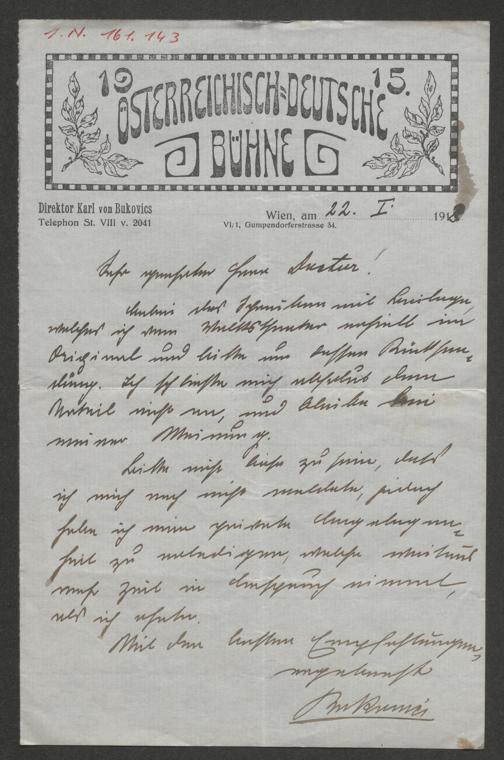 I. N. 161.143
19 15.
ÖSTERREICHISCH=DEUTSCHE
BÜHNE
Direktor Karl von Bukovics
Telephon St. VIII v. 2041
Wien, am 22. I. 191
VI/1, Gumpendorferstrasse 34.
Sehr geehrter Herr Doctor!
Anbei das Schreiben mit Beilage,
welches ich vom Volkstheater erhielt im
Original und bitte um dessen Rücksen=
dung. Ich schließe mich absolut dem
Urteil nicht an, und bleibe bei
meiner Meinung.
Bitte nicht böse zu sein, daß
ich mich noch nicht meldete, jedoch
habe ich eine private Angelegen=
heit zu erledigen, welche weitaus
mehr Zeit in Anspruch nimmt,
als ich ahnte.
Mit den besten Empfehlungen,
ergebenst
Bukovics